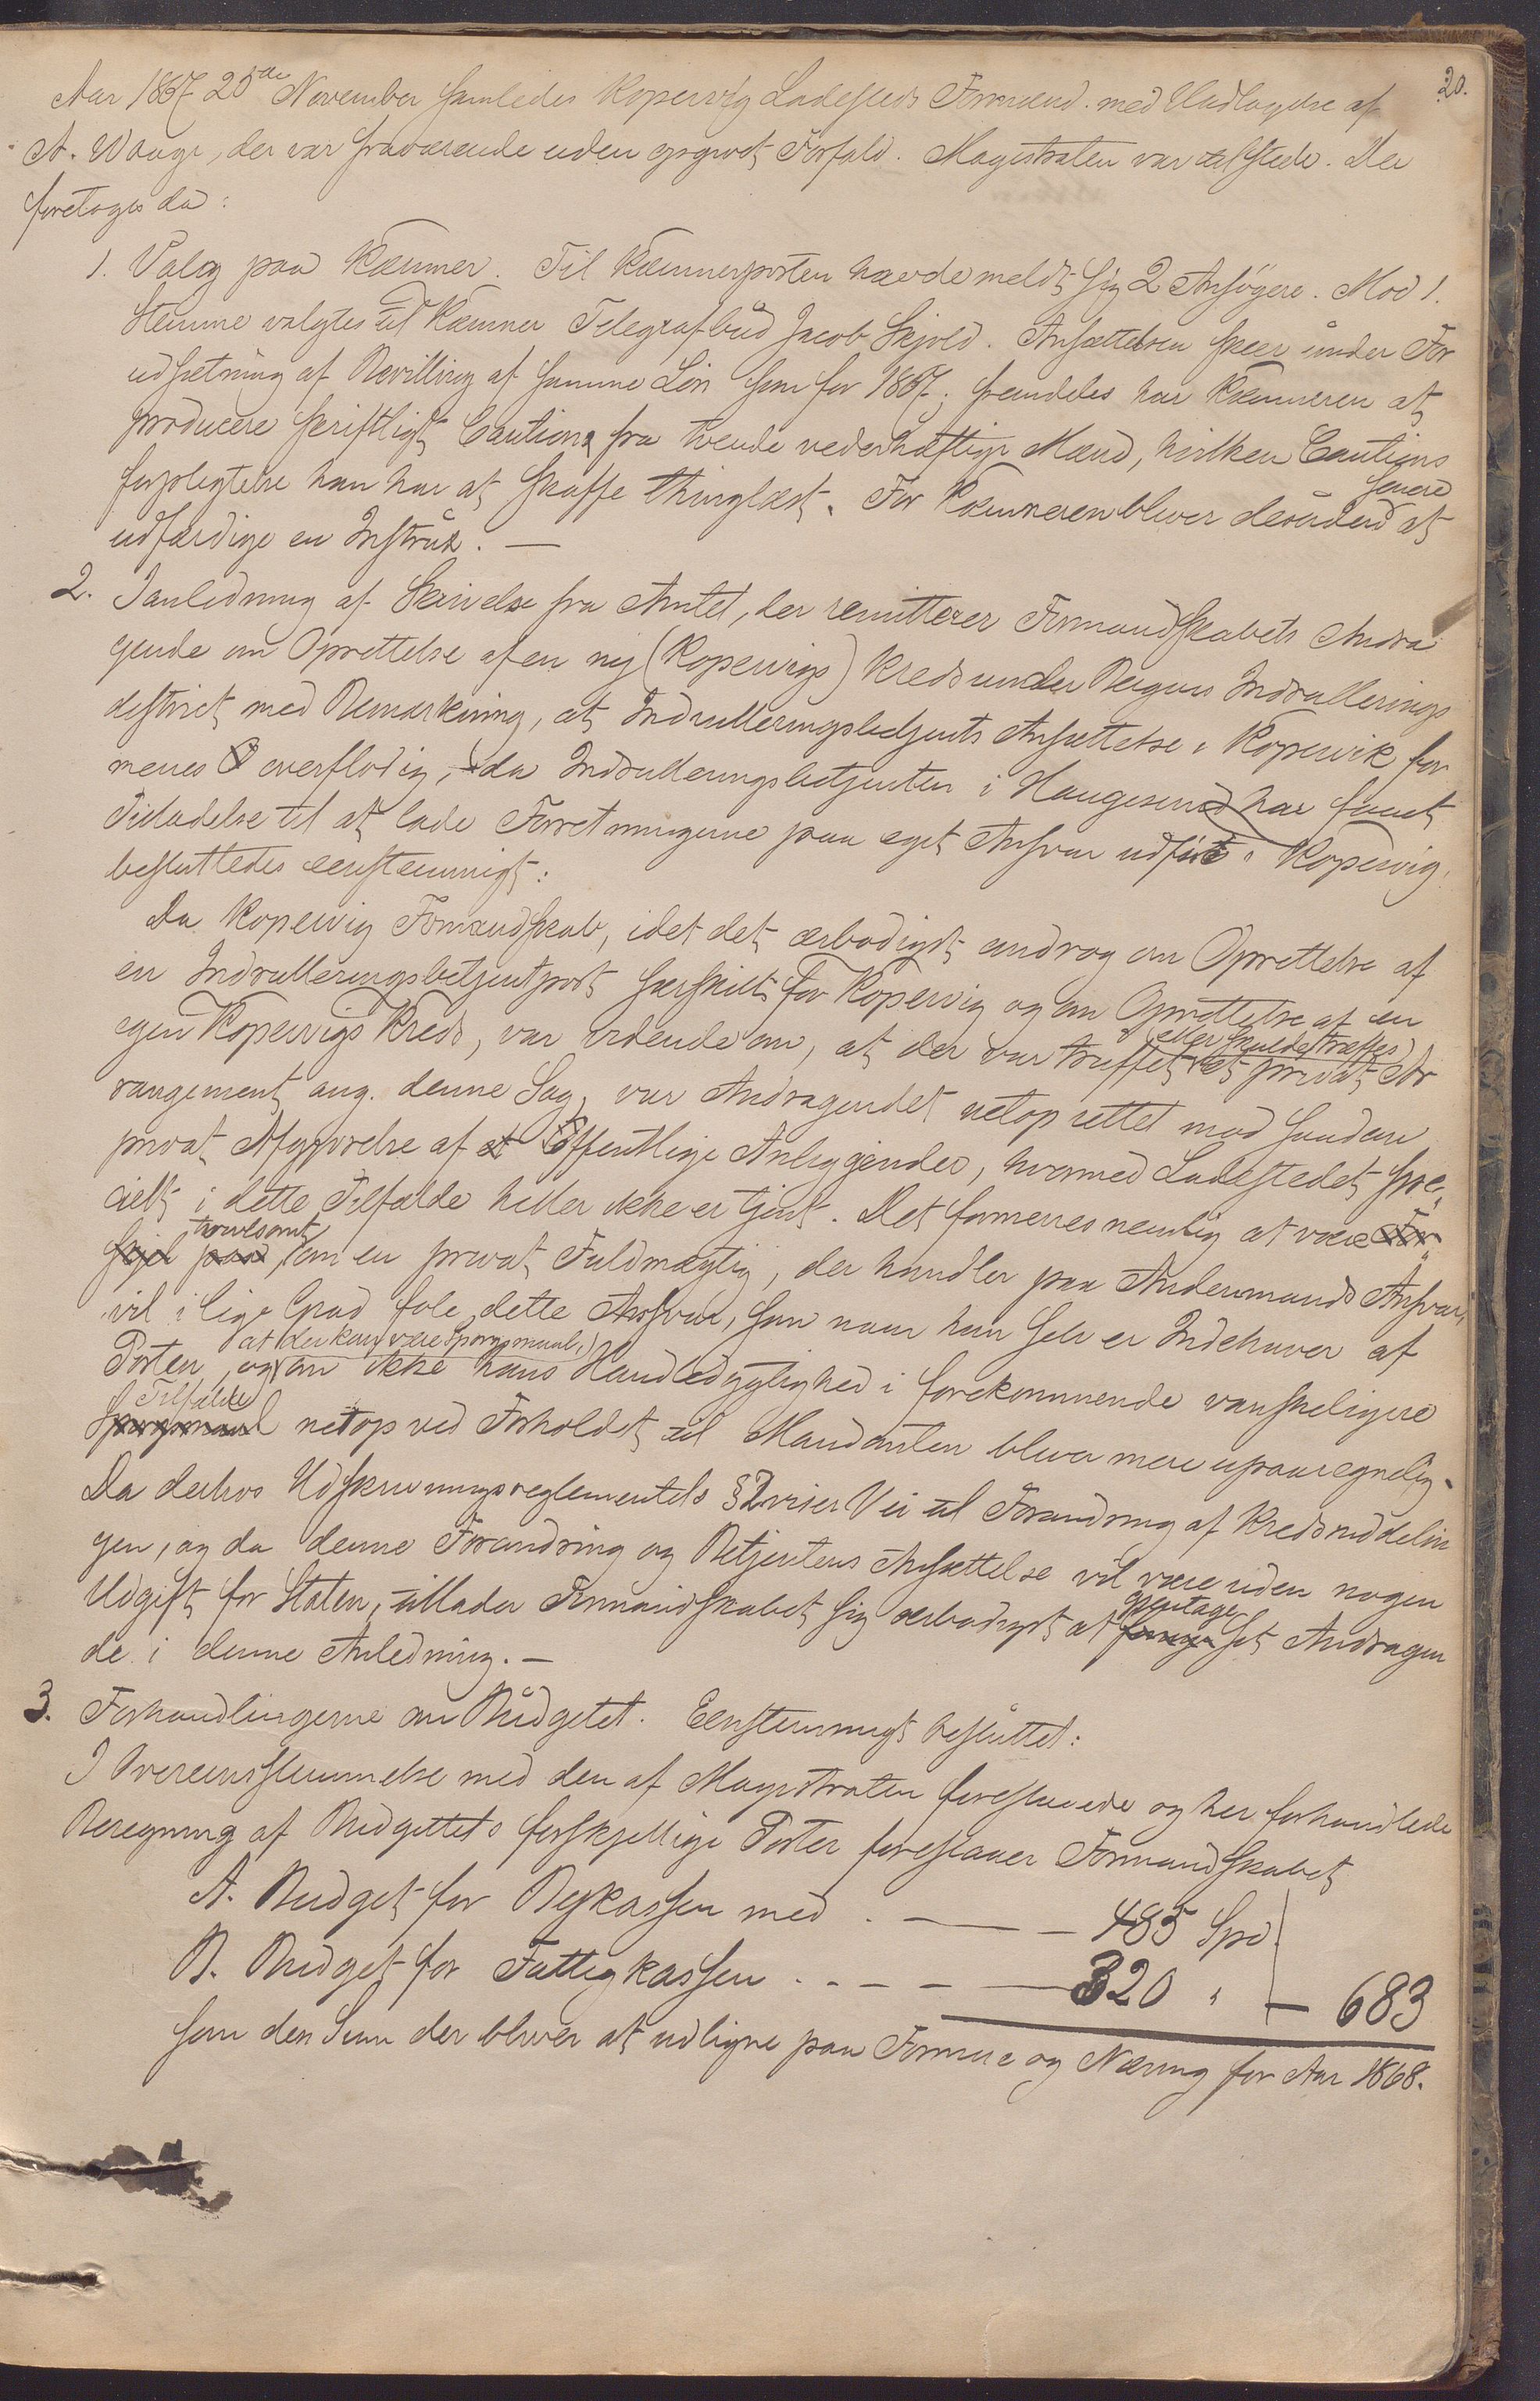 20.
Aar 1867 25de November samledes Kopervig Ladesteds Formænd. med Undtagelse af
A. Waage, der var fraværende uden opgivet Forfald. Magistraten var tilstede. Der
foretoges da:
1. Valg paa Kæmner. Til Kæmnerposten havde meldt sig 2 Ansøgere. Mod 1.
Stemme valgtes til Kæmner Telegrafbud Jacob Skjold. Ansættelsen skeer under For
udsætning af Bevilling af samme Løn som for 1867; fremdeles har Kæmneren at
producere skriftligt Caution fra tvende vederhæftige Mænd, hvilken Cautions
forpligtelse han har at skaffe thinglæst. For Kæmneren bliver desuden senere at
udfærdige en Instrux. —
2. I anledning af Skrivelse fra Amtet, der remitterer Formandskabets Andra
gende om Oprettelse af en ny (Kopervigs) Kreds under Bergens Indrullerings
district med Bemærkning, at Indrulleringsbetjents Ansættelse i Kopervik for
menes overflødig, da Indrulleringsbetjenten i Haugesund har faaet
Tilladelse til at lade Forretningerne paa eget Ansvar udføre i Kopervig,
besluttedes eenstemmigt:
Da Kopervig Formandskab, idet det ærbødigst androg om Oprettelse af
en Indrulleringsbetjentpost særskilt for Kopervig og om Oprettelse af en
egen Kopervigs Kreds, var vidende om, at der var truffet (eller skulde træffes) et privat Ar
rangement ang. denne Sag, var Andragendet netop rettet mod saadan
privat Afgjørelse af offentlige Anliggender, hvormed Ladestedet spe¬
cielt i dette Tilfælde heller ikke er tjent. Det formenes nemlig at være For¬
skjel paa tvivlsomt, om en privat Fuldmægtig, der handler paa Andenmands Ansvar,
vil i lige Grad føle dette Ansvar, som naar han selv er Indehaver af
Posten, og at der kan være Spørgsmaal, om ikke hans Handledygtighed i forekommende vanskeligere
Spørgsmaal Tilfælde netop ved Forholdet til Mandanten bliver mere upaaregnelig.
Da derhos Udskrivningsreglementets § 2 viser Vei til Forandring af Kredsinddelin
gen, og da denne Forandring og Betjentens Ansættelse vil være uden nogen
Udgift for Staten, tillader Formandskabet sig ærbødigst at gjentage sit Andragen
de i denne Anledning. —
3. Forhandlingerne om Budgetet. Eenstemmigt besluttet:
I Overeensstemmelse med den af Magistraten foreslaaede og her forhandlede
Beregning af Budgettets forskjellige Poster foreslaaer Formandskabet
A. Budget for Bykassen med . — — — 485 Spd.
B. Budget for Fattigkassen . . — — — 320 " — 683
som den Sum der bliver at udligne paa Formue og Næring for Aar 1868.